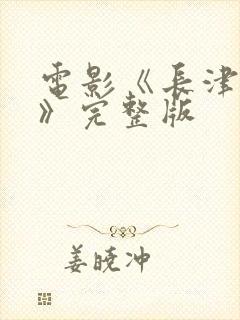 電影《長津
》完整版
姜曉冲